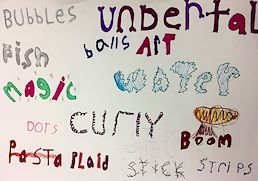 BUBBLES undental
Fish balls ART
Magic water
DOTS CURLY BOOM
PASTA PLAID STICK STRIPS